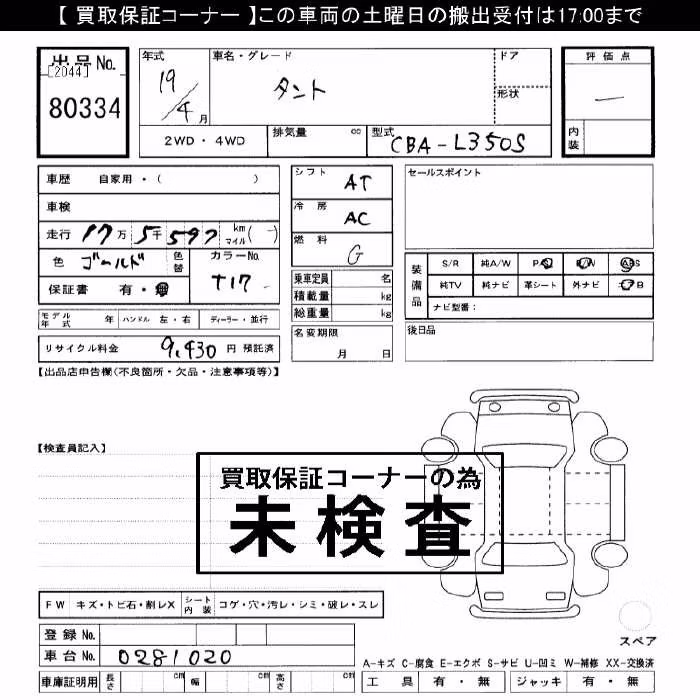 【 買取保証コーナー 】この車両の土曜日の搬出受付は17:00まで
出品No.
[2044]
80334
年式 19/4月
車名・グレード
タント
ドア
形状
評価点
―
内装
2WD・4WD 排気量 cc 型式 CBA-L350S
車歴 自家用・( )
車検
走行 17万 5千597 km マイル( - )
色 ゴールド 色替 カラーNo. T17
保証書 有・無
モデル年式 年 ハンドル 左・右 ディーラー・並行
リサイクル料金 9,430 円 預託済
シフト AT
冷房 AC
燃料 G
乗車定員 名
積載量 kg
総重量 kg
名変期限
月 日
セールスポイント
装備品
S/R 純A/W PS P/W ABS
純TV 純ナビ 革シート 外ナビ エアB
ナビ型番:
後日品
【出品店申告欄(不良箇所・欠品・注意事項等)】
【検査員記入】
買取保証コーナーの為
未検査
FW キズ・トビ石・割レX シート内装 コゲ・穴・汚レ・シミ・破レ・スレ
登録No.
車台No. 0281020
車庫証明用 長さ cm 幅 cm 高さ cm
スペア
A-キズ C-腐食 E-エクボ S-サビ U-凹ミ W-補修 XX-交換済
工具 有・無 ジャッキ 有・無